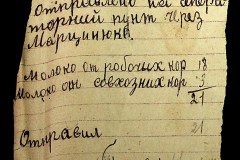 Отправлено на сыворо
торний пункт через
Марцинюка.
Молоко от робочых кор 18
Молоко от совхозних кор 3
21
Отправил 21